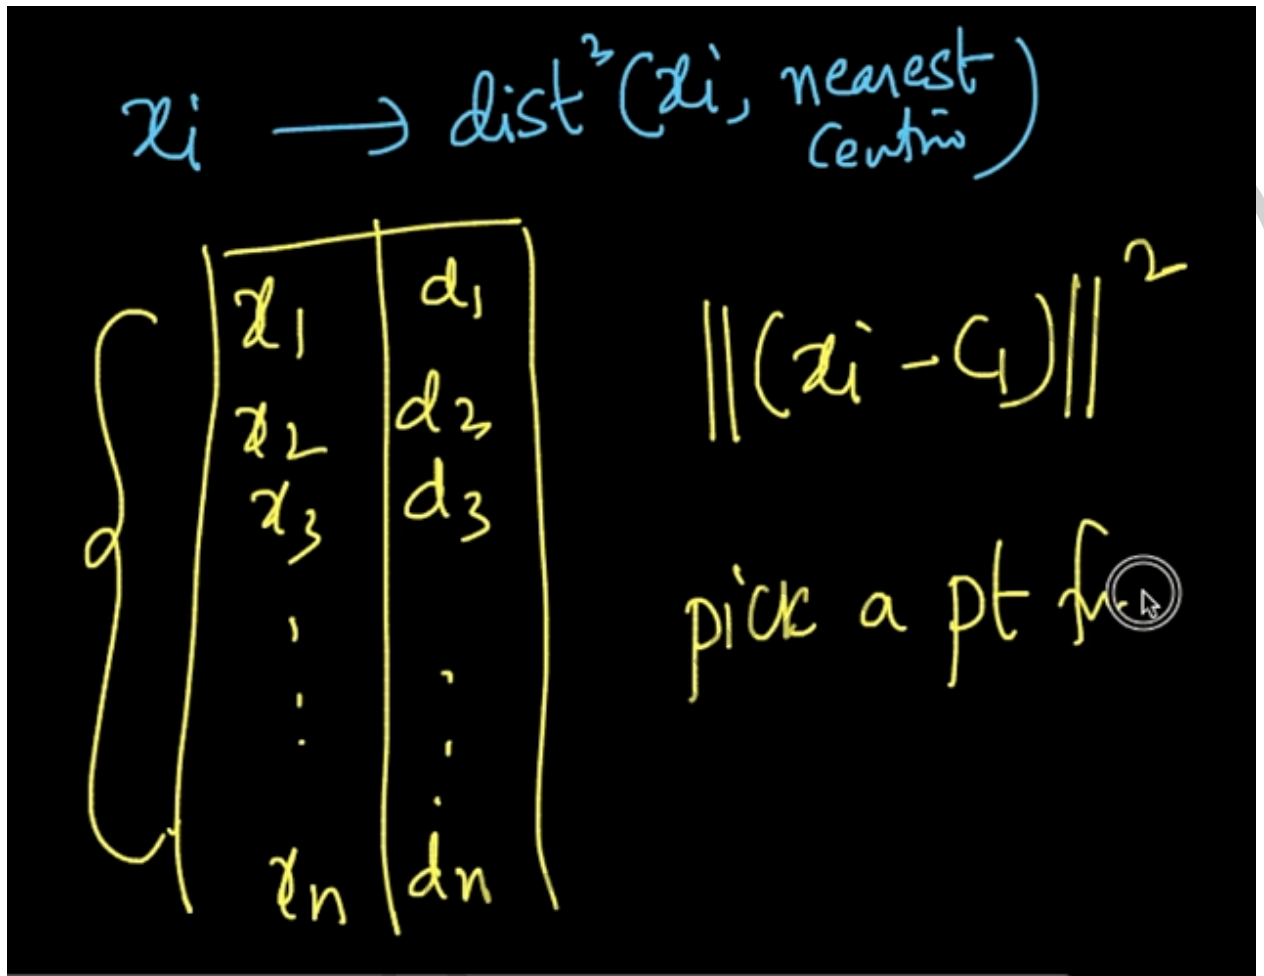 xi → dist² (xi, nearest
centrio)
x1 d1
x2 d2
x3 d3
xn dn
||(xi - C1)||²
pick a pt